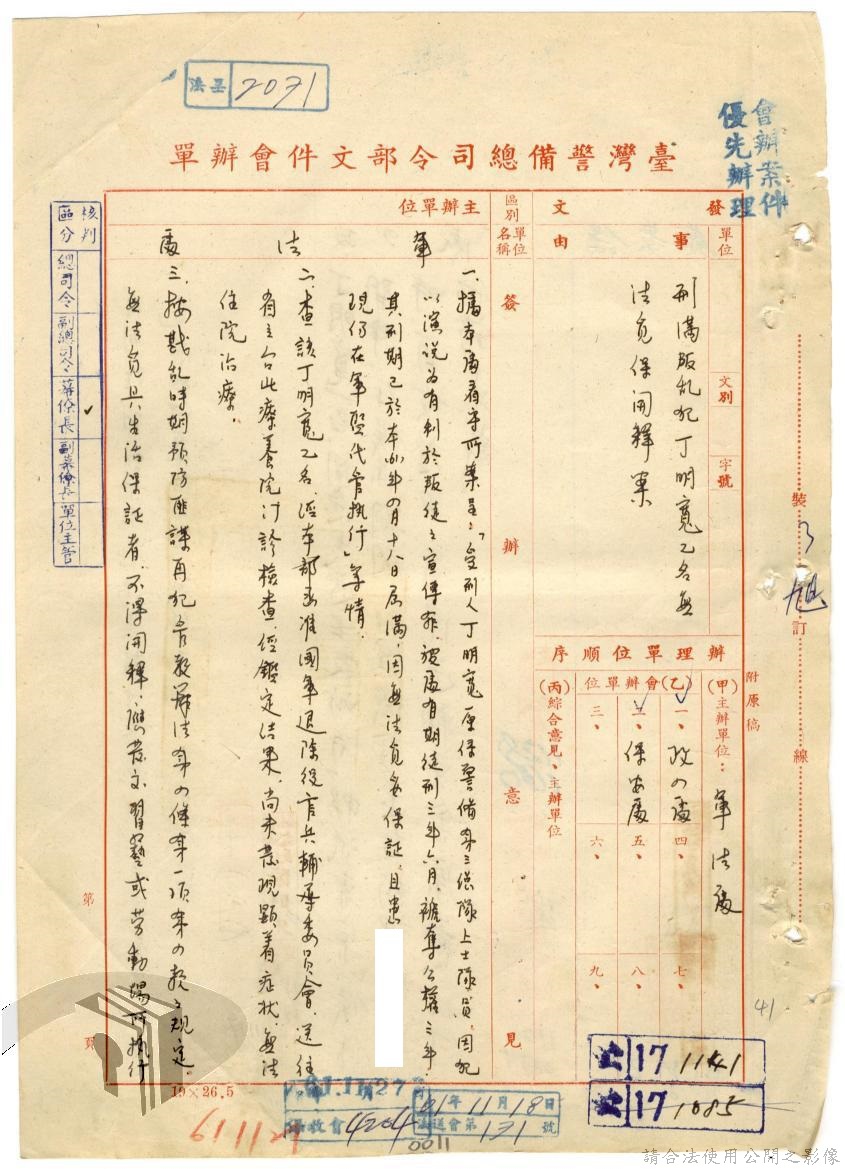 法呈 2071
會辦案件
優先辦理
臺灣警備總司令部文件會辦單
發文
單位
文別
字號
事由
刑滿叛乱犯丁明寬乙名無
法覓保開釋案
辦理單位順序
(甲)主辦單位：軍法處
(乙)會辦單位
一、政四處
二、保安處
三、
四、
五、
六、
七、
八、
九、
(丙)綜合意見、主辦單位
附原稿
裝訂線
區別
單位名稱
主辦單位
軍法處
簽辦意見
一、據本處看守所案呈：「受刑人丁明寬原係警備第三總隊上士隊員，因犯
以演說為有利於叛徒之宣傳罪，被處有期徒刑三年六月，褫奪公權三年，
其刑期已於本61年四月十八日屆滿，因無法覓妥保証，且患
現仍在軍監代管執行」等情。
二、查該丁明寬乙名，經本部函准國軍退除役官兵輔導委員會，送往
台北療養院門診檢查，經鑑定結果，尚未發現顯着症狀，無法
住院治療。
三、按戡乱時期預防匪諜再犯管教辦法第四條第一項第四款之規定。
無法覓具生活保証者，不得開釋，應發交習藝或勞動場所執行
核判區分
總司令
副總司令
幕僚長
副幕僚長
單位主管
第 頁
19×26.5
17 1141
17 1085
61.11.27
收會 4204
61年11月18日
法送會第 131 號
0011
611121
41
請合法使用公開之影像